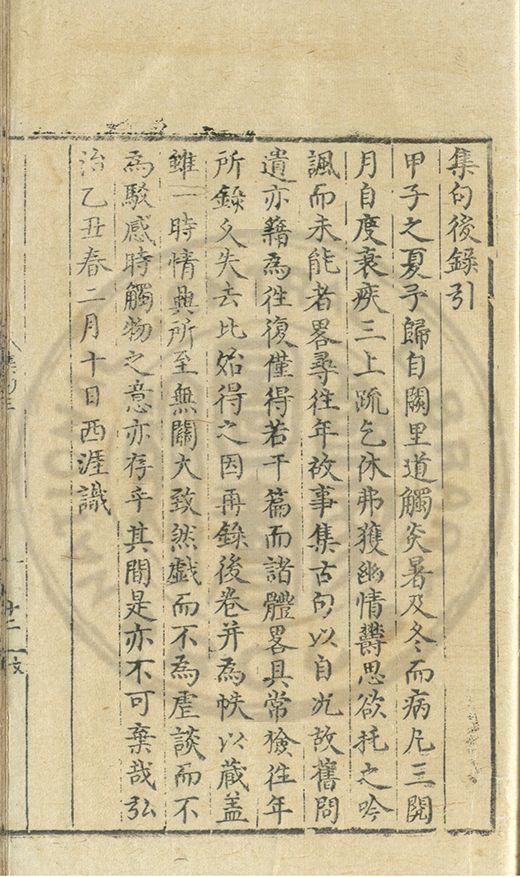 集句後錄引
甲子之夏予歸自闕里道觸炎暑及冬而病凡三閱
月自度衰疾三上疏乞休弗獲幽情鬱思欲托之吟
諷而未能者畧尋往年故事集古句以自况故舊問
遺亦籍為往復僅得若干篇而諸體畧具常撿往年
所錄久失去比始得之因再錄後卷并為帙以藏盖
雖一時情興所至無關大致然戯而不為虐談而不
為駁感時觸物之意亦存乎其間是亦不可棄哉弘
治乙丑春二月十日西涯識